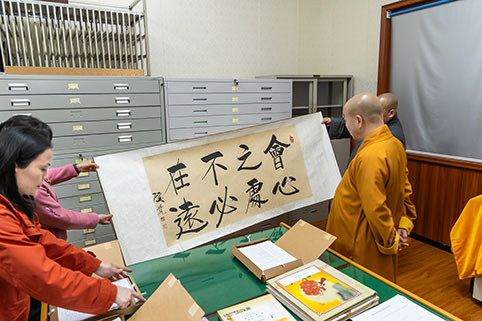 會心
之處
不必
在遠